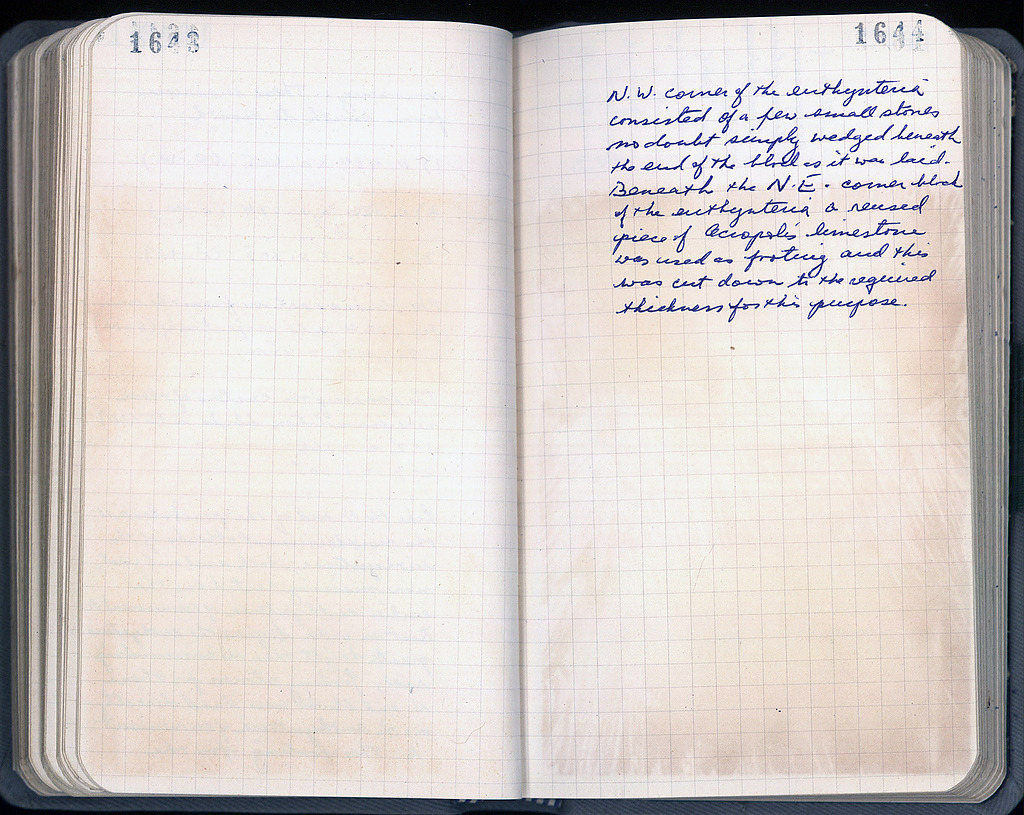 1643
1644
N.W. corner of the euthynteria
consisted of a few small stones
no doubt simply wedged beneath
the end of the block as it was laid.
Beneath the N.E. corner block
of the euthynteria a reused
piece of Acropolis limestone
was used as footing and this
was cut down to the required
thickness for this purpose.